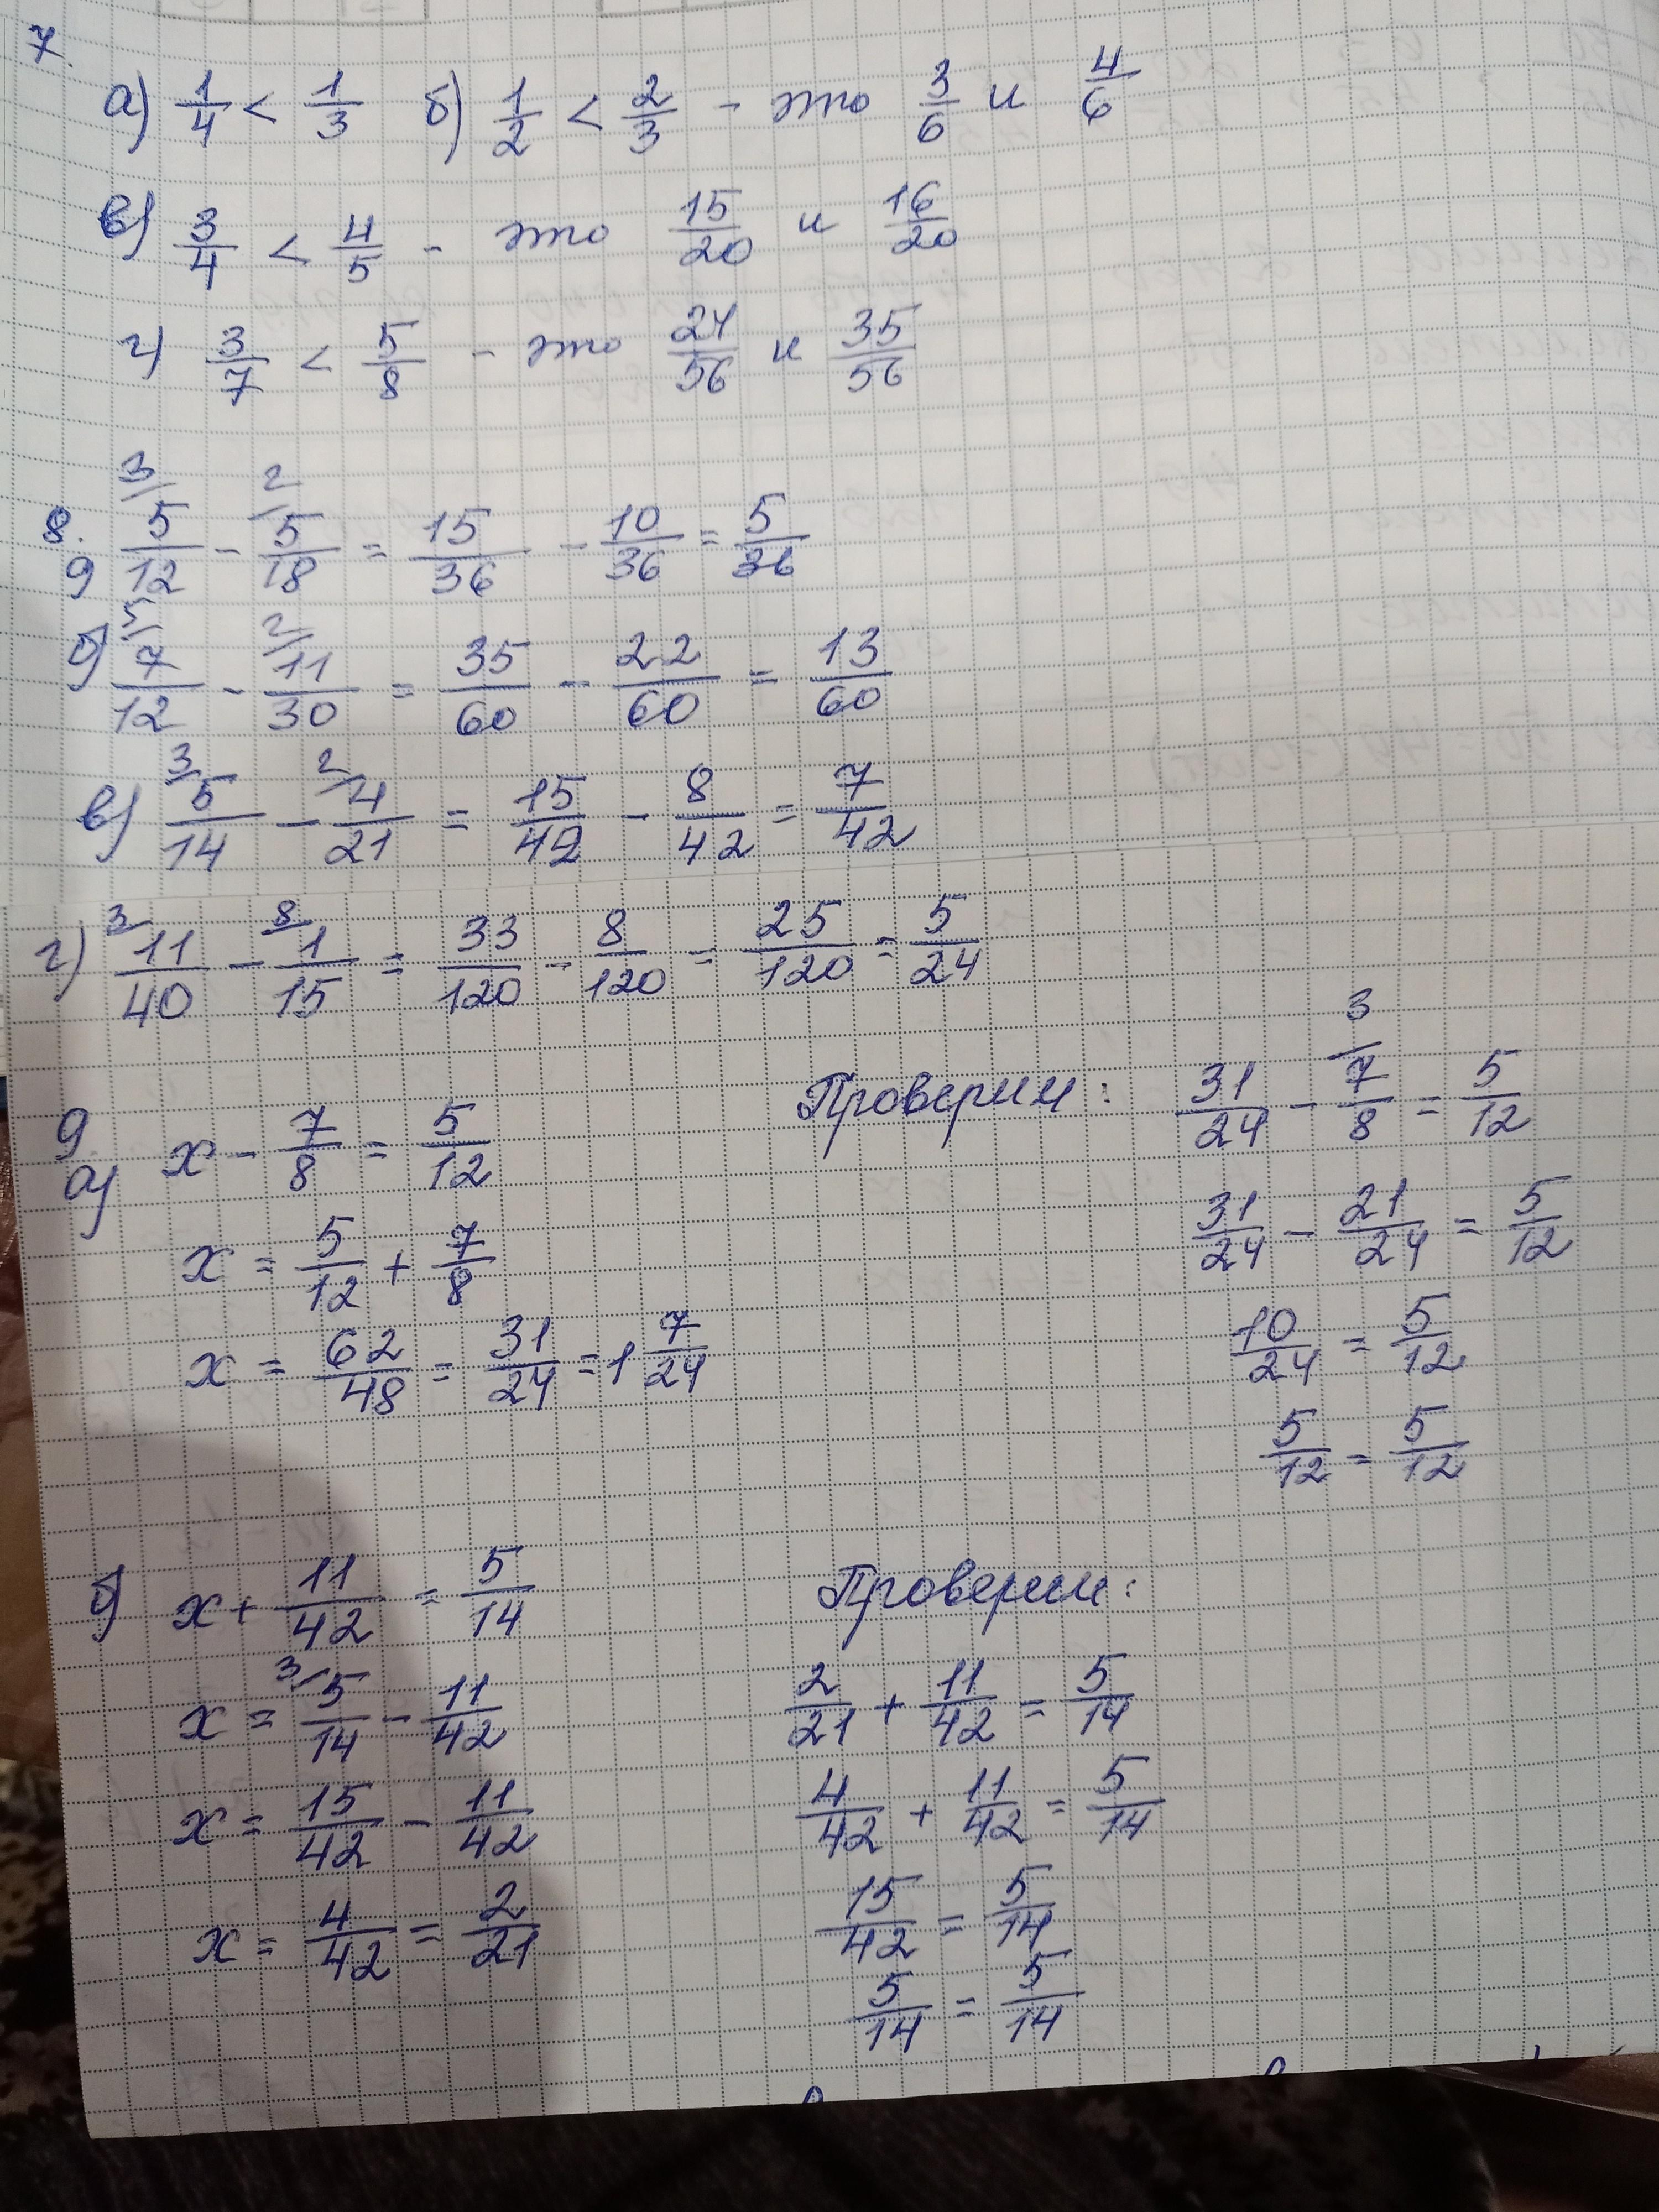 7.
а) 1/4 < 1/3 б) 1/2 < 2/3 - это 3/6 и 4/6
в) 3/4 < 4/5 - это 15/20 и 16/20
г) 3/7 < 5/8 - это 24/56 и 35/56
3/ 2/
8. а) 5/12 - 5/18 = 15/36 - 10/36 = 5/36
5/ 2/
б) 7/12 - 11/30 = 35/60 - 22/60 = 13/60
3/ 2/
в) 5/14 - 4/21 = 15/42 - 8/42 = 7/42
3/ 8/
г) 11/40 - 1/15 = 33/120 - 8/120 = 25/120 = 5/24
9.
а) x - 7/8 = 5/12
x = 5/12 + 7/8
x = 62/48 = 31/24 = 1 7/24
Проверим: 31/24 - 3/ 7/8 = 5/12
31/24 - 21/24 = 5/12
10/24 = 5/12
5/12 = 5/12
б) x + 11/42 = 5/14
x = 3/ 5/14 - 11/42
x = 15/42 - 11/42
x = 4/42 = 2/21
Проверим:
2/21 + 11/42 = 5/14
4/42 + 11/42 = 5/14
15/42 = 5/14
5/14 = 5/14